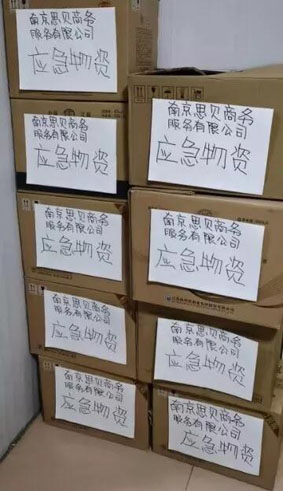 南京思贝商务
服务有限公司
应急物资
南京思贝商务
服务有限公司
应急物资
南京思贝商务
服务有限公司
应急物资
南京思贝商务
服务有限公司
应急物资
南京思贝商务
服务有限公司
应急物资
南京思贝商务
服务有限公司
应急物资
南京思贝商务
服务有限公司
应急物资
南京思贝商务
服务有限公司
应急物资
南京思贝商务
服务有限公司
应急物资